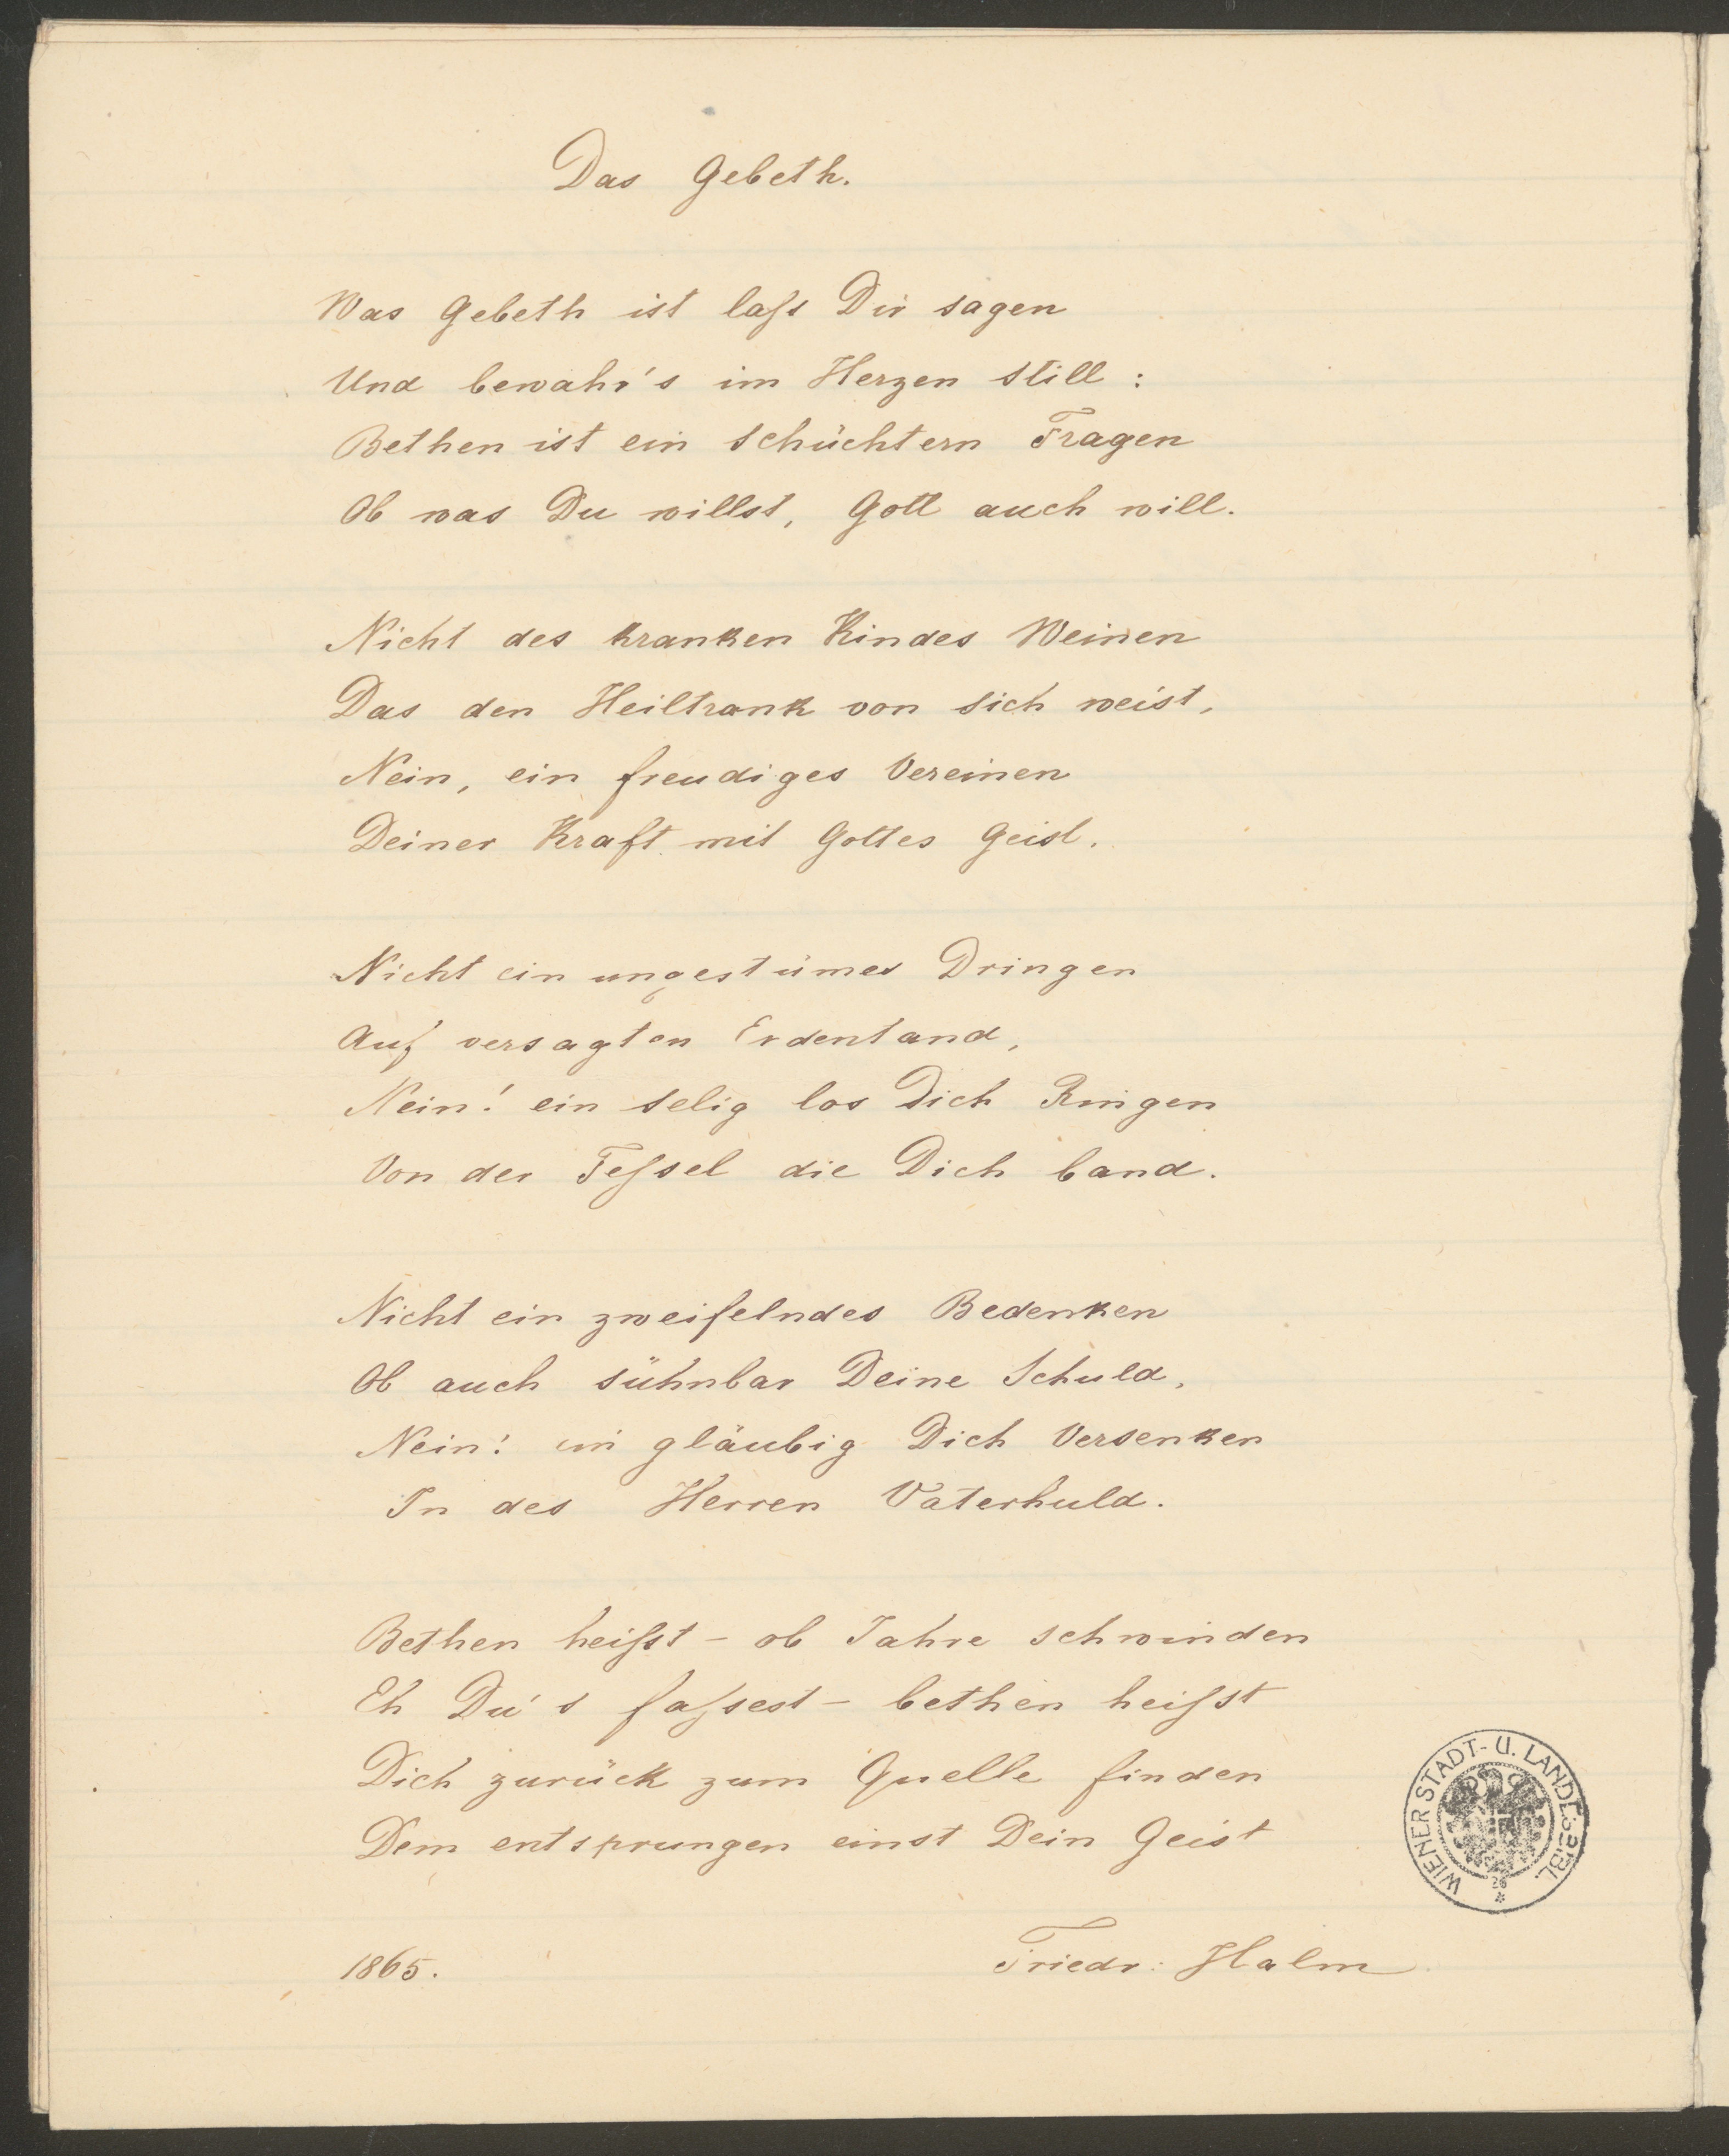 Das Gebeth.
Was Gebeth ist laſs Dir sagen
Und bewahr's im Herzen still:
Bethen ist ein schüchtern Fragen
Ob was Du willst, Gott auch will.
Nicht des kranken Kindes Weinen
Das den Heiltrank von sich weist,
Nein, ein freudiges Vereinen
Deiner Kraft mit Gottes Geist.
Nicht ein ungestümes Dringen
Auf versagten Erdentand,
Nein! ein selig los Dich Ringen
Von der Feſsel die Dich band.
Nicht ein zweifelndes Bedenken
Ob auch sühnbar Deine Schuld,
Nein! ein gläubig Dich Versenken
In des Herren Vaterhuld.
Bethen heiſst – ob Jahre schwinden
Eh Du's faſsest – bethen heiſst
Dich zurück zum Quelle finden
Dem entsprungen einst Dein Geist
1865. Friedr: Halm
WIENER STADT- U. LANDESBIBL.
26